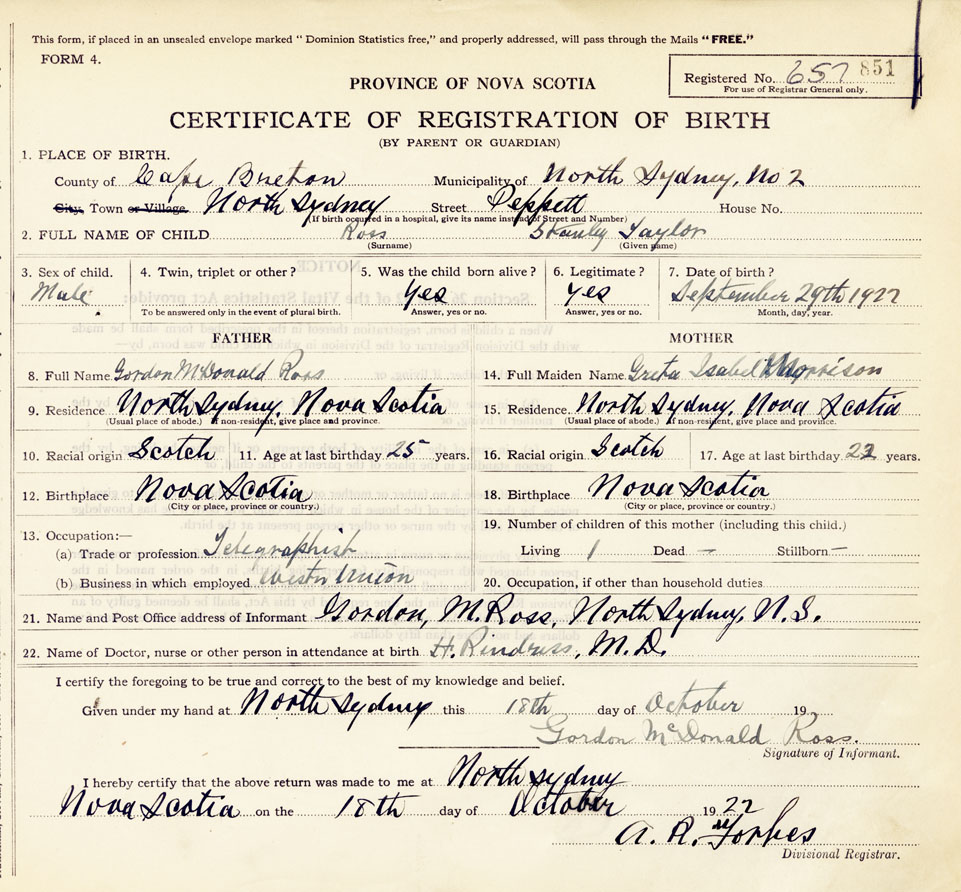 This form, if placed in an unsealed envelope marked “ Dominion Statistics free,” and properly addressed, will pass through the Mails “FREE.”
FORM 4.
Registered No. 657 851
For use of Registrar General only.
PROVINCE OF NOVA SCOTIA
CERTIFICATE OF REGISTRATION OF BIRTH
(BY PARENT OR GUARDIAN)
1. PLACE OF BIRTH.
County of Cape Breton Municipality of North Sydney, No 2
City, Town or Village North Sydney Street Peppett House No.
(If birth occurred in a hospital, give its name instead of Street and Number)
2. FULL NAME OF CHILD Ross Stanley Taylor
(Surname) (Given name)
3. Sex of child. 4. Twin, triplet or other? 5. Was the child born alive? 6. Legitimate? 7. Date of birth?
Male Yes Yes September 29th 1922
To be answered only in the event of plural birth. Answer, yes or no. Answer, yes or no. Month, day, year.
FATHER MOTHER
8. Full Name Gordon McDonald Ross 14. Full Maiden Name Greta Isabel Morrison
9. Residence North Sydney, Nova Scotia 15. Residence North Sydney, Nova Scotia
(Usual place of abode.) If non-resident, give place and province. (Usual place of abode.) If non-resident, give place and province.
10. Racial origin Scotch 11. Age at last birthday 25 years. 16. Racial origin Scotch 17. Age at last birthday 22 years.
12. Birthplace Nova Scotia 18. Birthplace Nova Scotia
(City or place, province or country.) (City or place, province or country.)
13. Occupation:— 19. Number of children of this mother (including this child.)
(a) Trade or profession Telegraphist Living 1 Dead — Stillborn —
(b) Business in which employed Westn Union 20. Occupation, if other than household duties
21. Name and Post Office address of Informant Gordon, M. Ross, North Sydney, N. S.
22. Name of Doctor, nurse or other person in attendance at birth H. Rindress, M. D.
I certify the foregoing to be true and correct to the best of my knowledge and belief.
Given under my hand at North Sydney this 18th day of October 19
Gordon McDonald Ross.
Signature of Informant.
I hereby certify that the above return was made to me at North Sydney
Nova Scotia on the 18th day of October 1922
A. R. Forbes
Divisional Registrar.